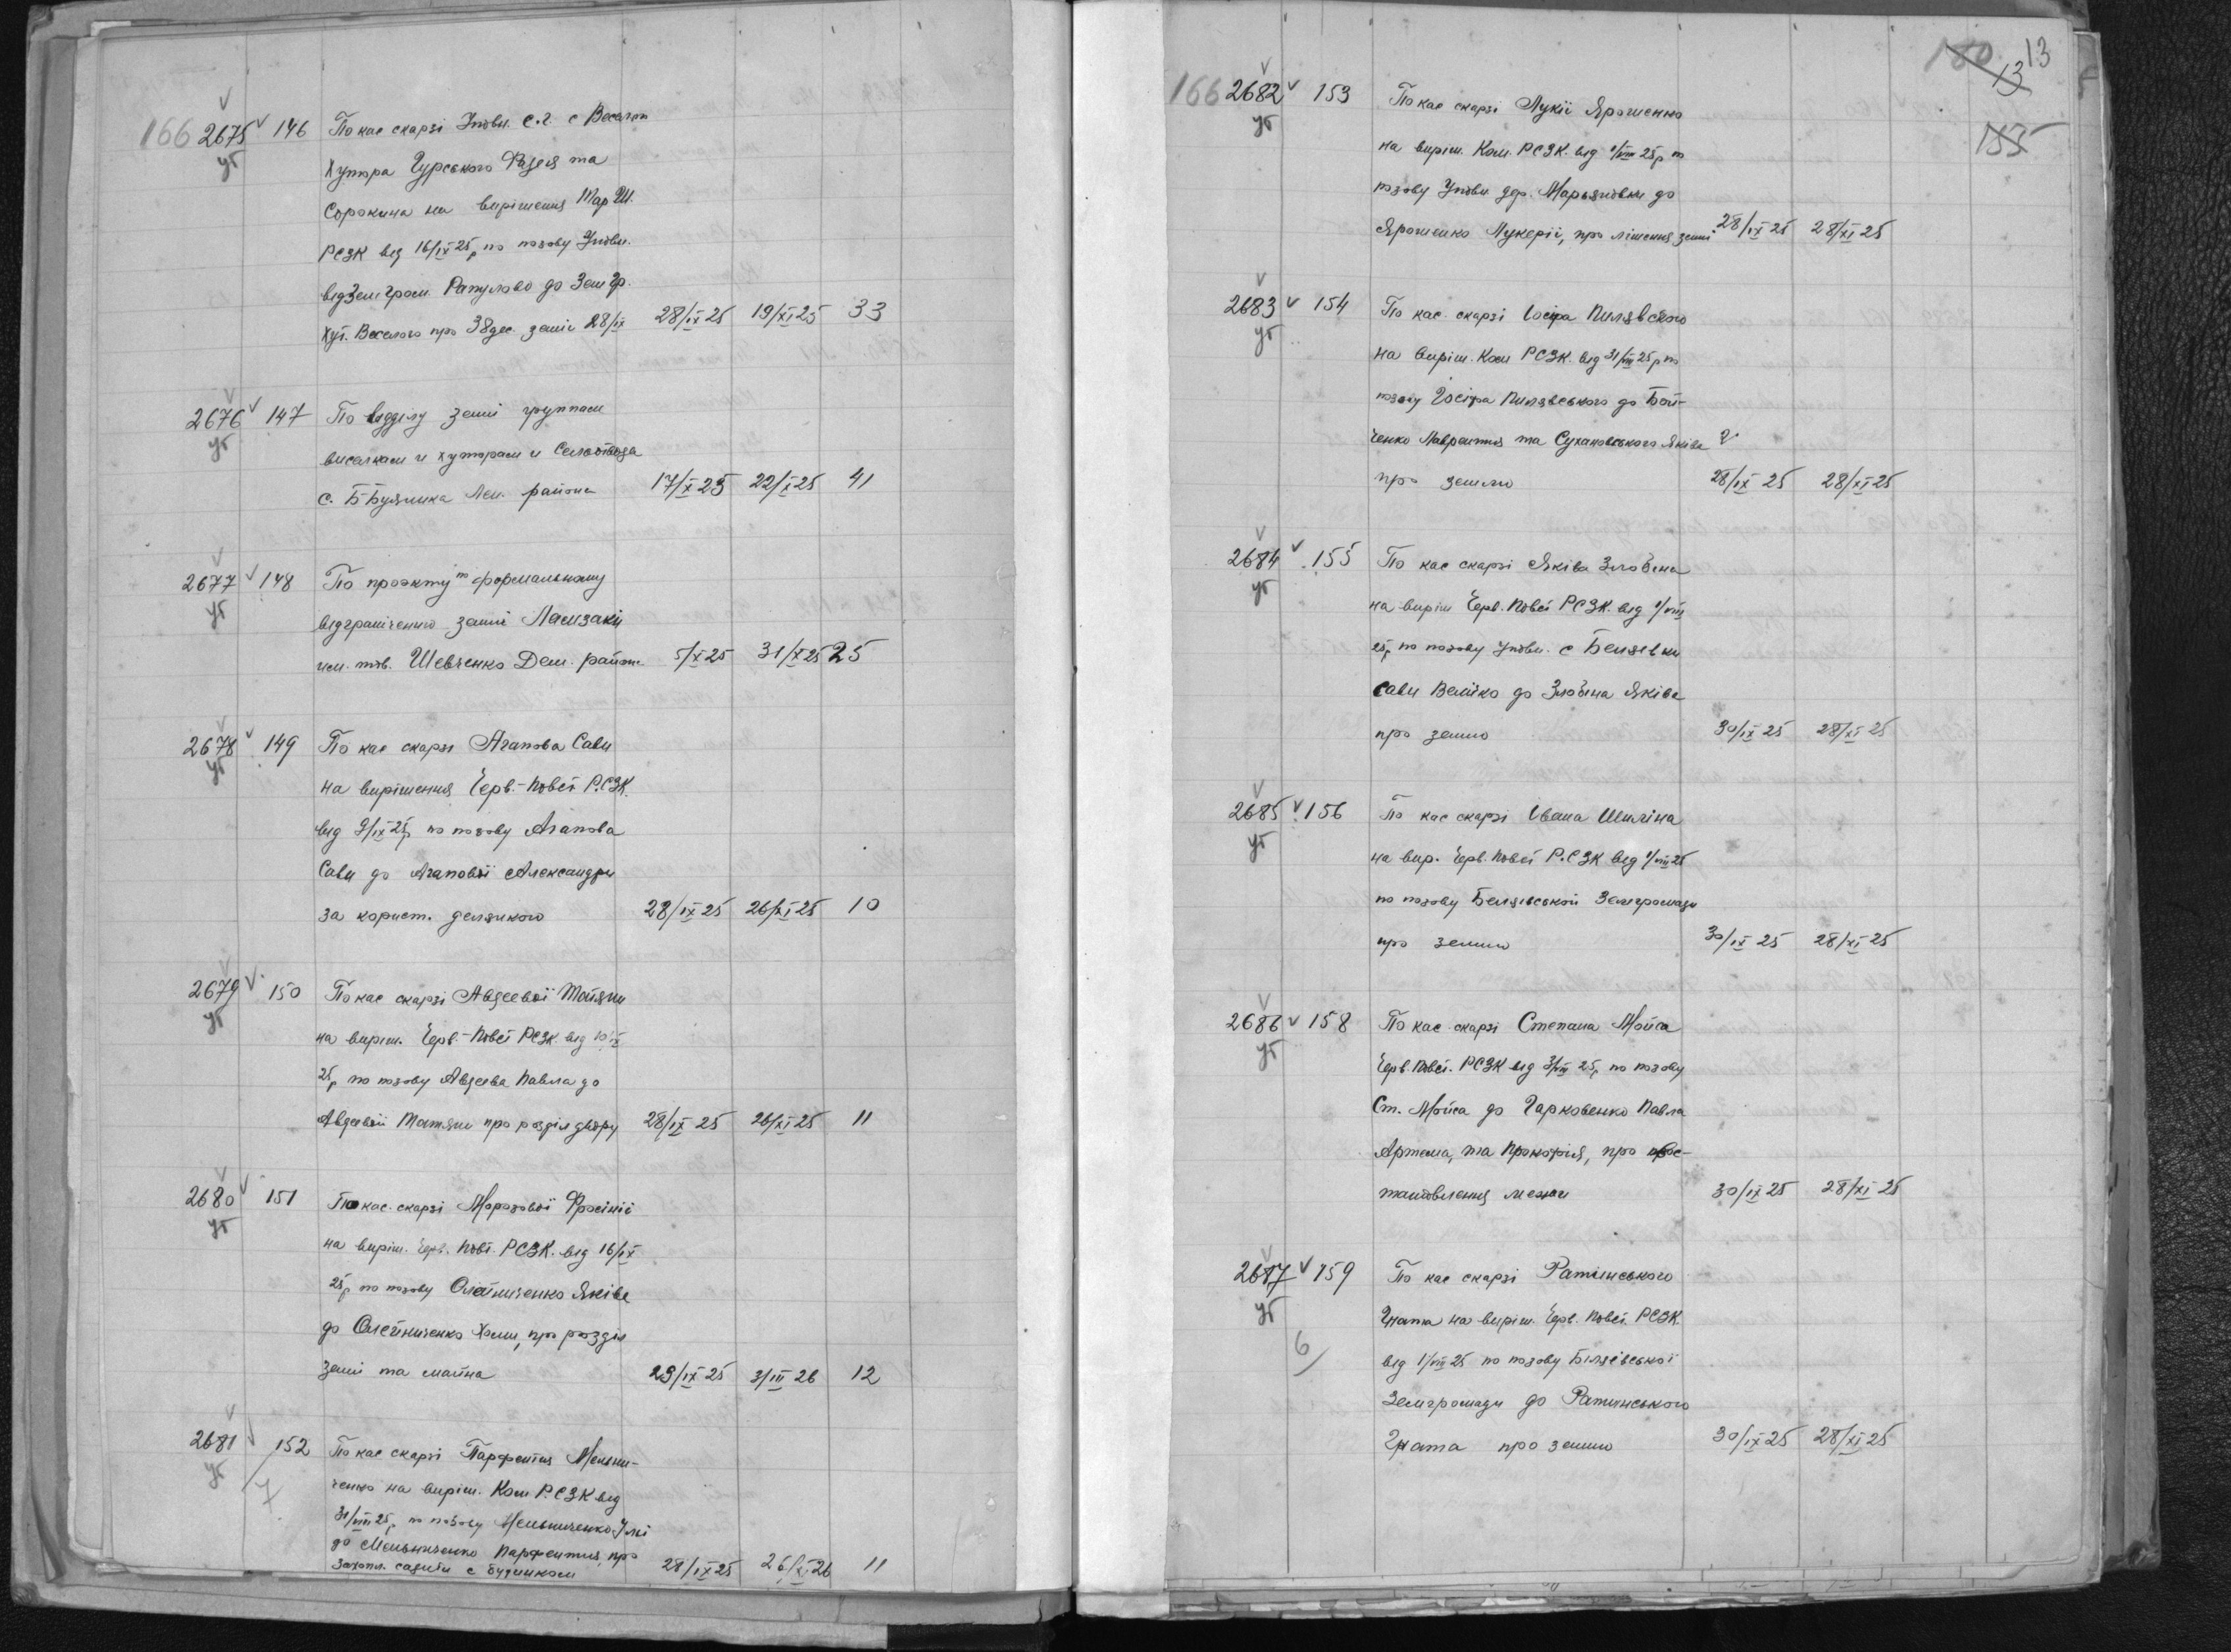 166 2675 146 По кас скарзі Уповн. с.г. с Веселого
уг Хутора Гурського Фадея та
Сорокина на вирішення
РСЗК від 16/IX 25р по позову Уповн.
від Земгром. Рапулово до Зем гр.
Хут. Веселого про 38 дес. землі 28/IX 28/IX 25 19/XI 25 33
2676 147 По відділу землі группам
уг виселкам и хуторам и Сельотвода
с. Б Буялика Лен. района 17/X 25 22/X 25 41
2677 148 По проэкту формальному
уг відграніченню землі
им. тов. Шевченко Дем. района 5/X 25 31/X 25 25
2678 149 По кас скарзі Агапова Сави
уг на вирішення Черв.-Повст Р.СЗК.
від 9/IX 25р по позову Агапова
Сави до Агапової Александри
за корист. 28/IX 25 26/XI 25 10
2679 150 По кас скарзі Авдеевої Татяни
уг на виріш. Черв.-Повст РСЗК від 10/IX
25р по позову Авдеева Павла до
Авдеевої Татяни про розділ двору 28/IX 25 26/XI 25 11
2680 151 По кас. скарзі Морозової Фросінії
уг на виріш. Черв. Повст. РСЗК. від 16/IX
25р по позову Олейниченко Яківа
до Олейниченко Хоми, про розділ
землі та майна 29/IX 25 3/III 26 12
2681 152 По кас скарзі Парфентия Мельни-
уг 7 ченко на виріш. Ком Р.СЗК від
31/VIII 25р по позову Мельниченко Улі
до Мельниченко Парфентия, про
захопл. садиби с будинком 28/IX 25 26/XI 26 11
180 13
13
155
166 2682 153 По кас скарзі Лукії Ярошенко
уг на виріш. Ком. РСЗК. від 1/VIII 25р по
позову Уповн дер. Марьяновки до
Ярошенко Лукерії, про лішення землі 28/IX 25 28/XI 25
2683 154 По кас. скарзі Іосіфа Пилявского
уг на виріш. Ком РСЗК. від 31/VIII 25р по
позову Йосіфа Пилявського до Бой-
ченко Лаврентия та Сухановського Яківа
про землю 28/IX 25 28/XI 25
2684 155 По кас скарзі Яківа Злобина
уг на виріш Черв. Повст РСЗК. від 1/VIII
25р по позову Уповн. с Беляевки
Сави Велічко до Злобина Яківа
про землю 30/IX 25 28/XI 25
2685 156 По кас скарзі Івана Шиліна
уг на вир. Черв. Повст Р.СЗК від 1/VIII 25
по позову Беляевської Земгромади
про землю 30/IX 25 28/XI 25
2686 158 По кас. скарзі Степана Мойса
уг Черв. Повст. РСЗК від 3/VIII 25р по позову
Ст. Мойса до Гарковенко Павла
Артема, та Прокофія, про
тановлення межи 30/IX 25 28/XI 25
2687 159 По кас скарзі Ратинського
уг Гната на виріш. Черв. Повст. РСЗК
6 від 1/VIII 25 по позову Біляєвської
Земгромади до Ратинського
Гната про землю 30/IX 25 28/XI 25